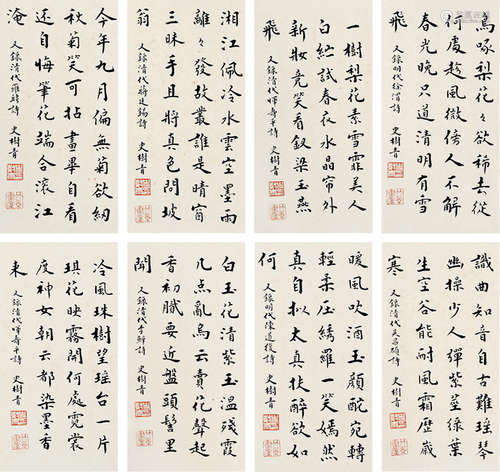 鳥啄梨花々欲稀去從
何處趁風微傍人不解
春光晚只道清明有雪
飛 又錄明代徐渭詩 史樹青
一樹梨花素雪霏美人
白紵試春衣水晶帘外
新妝竟笑看釵梁玉燕
飛 又錄清代惲壽平詩 史樹青
湘江佩冷水雲空墨雨
離々發故叢誰是晴窗
三昧手且將真色問坡
翁 又錄清代蔣廷錫詩 史樹青
今年九月偏無菊欲納
秋菊笑可拈畫畢自看
還自悔筆花端合滾江
淹 又錄清代羅聘詩 史樹青
識曲知音自古難瑤琴
幽操少人彈紫莖綠葉
生空谷能耐風霜歷歲
寒 又錄清代吳昌碩詩 史樹青
暖風吹酒玉顏酡宛轉
輕柔壓綉羅一笑嫣然
真自擬太真扶醉欲如
何 又錄明代陳道復詩 史樹青
白玉花清紫玉溫殘霞
几点亂烏云賣花聲起
香初膩要近盤頭髻里
聞 又錄清代李鱓詩 史樹青
冷風珠樹望瑤台一片
琪花映霧開何處霓裳
度神女朝云都染墨香
来 又錄清代惲壽平詩 史樹青